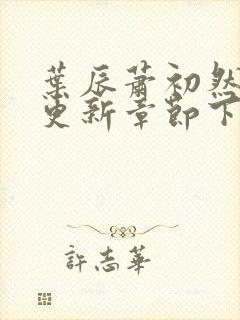 葉辰蕭初然
更新章節下
許志華